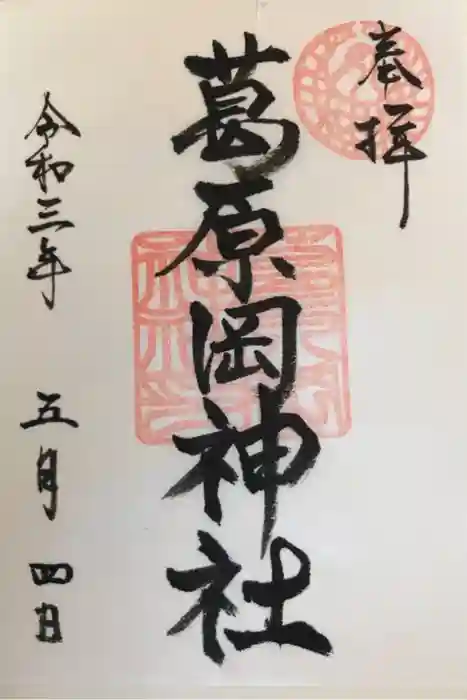 奉拝
葛原岡神社
令和三年 五月 四日